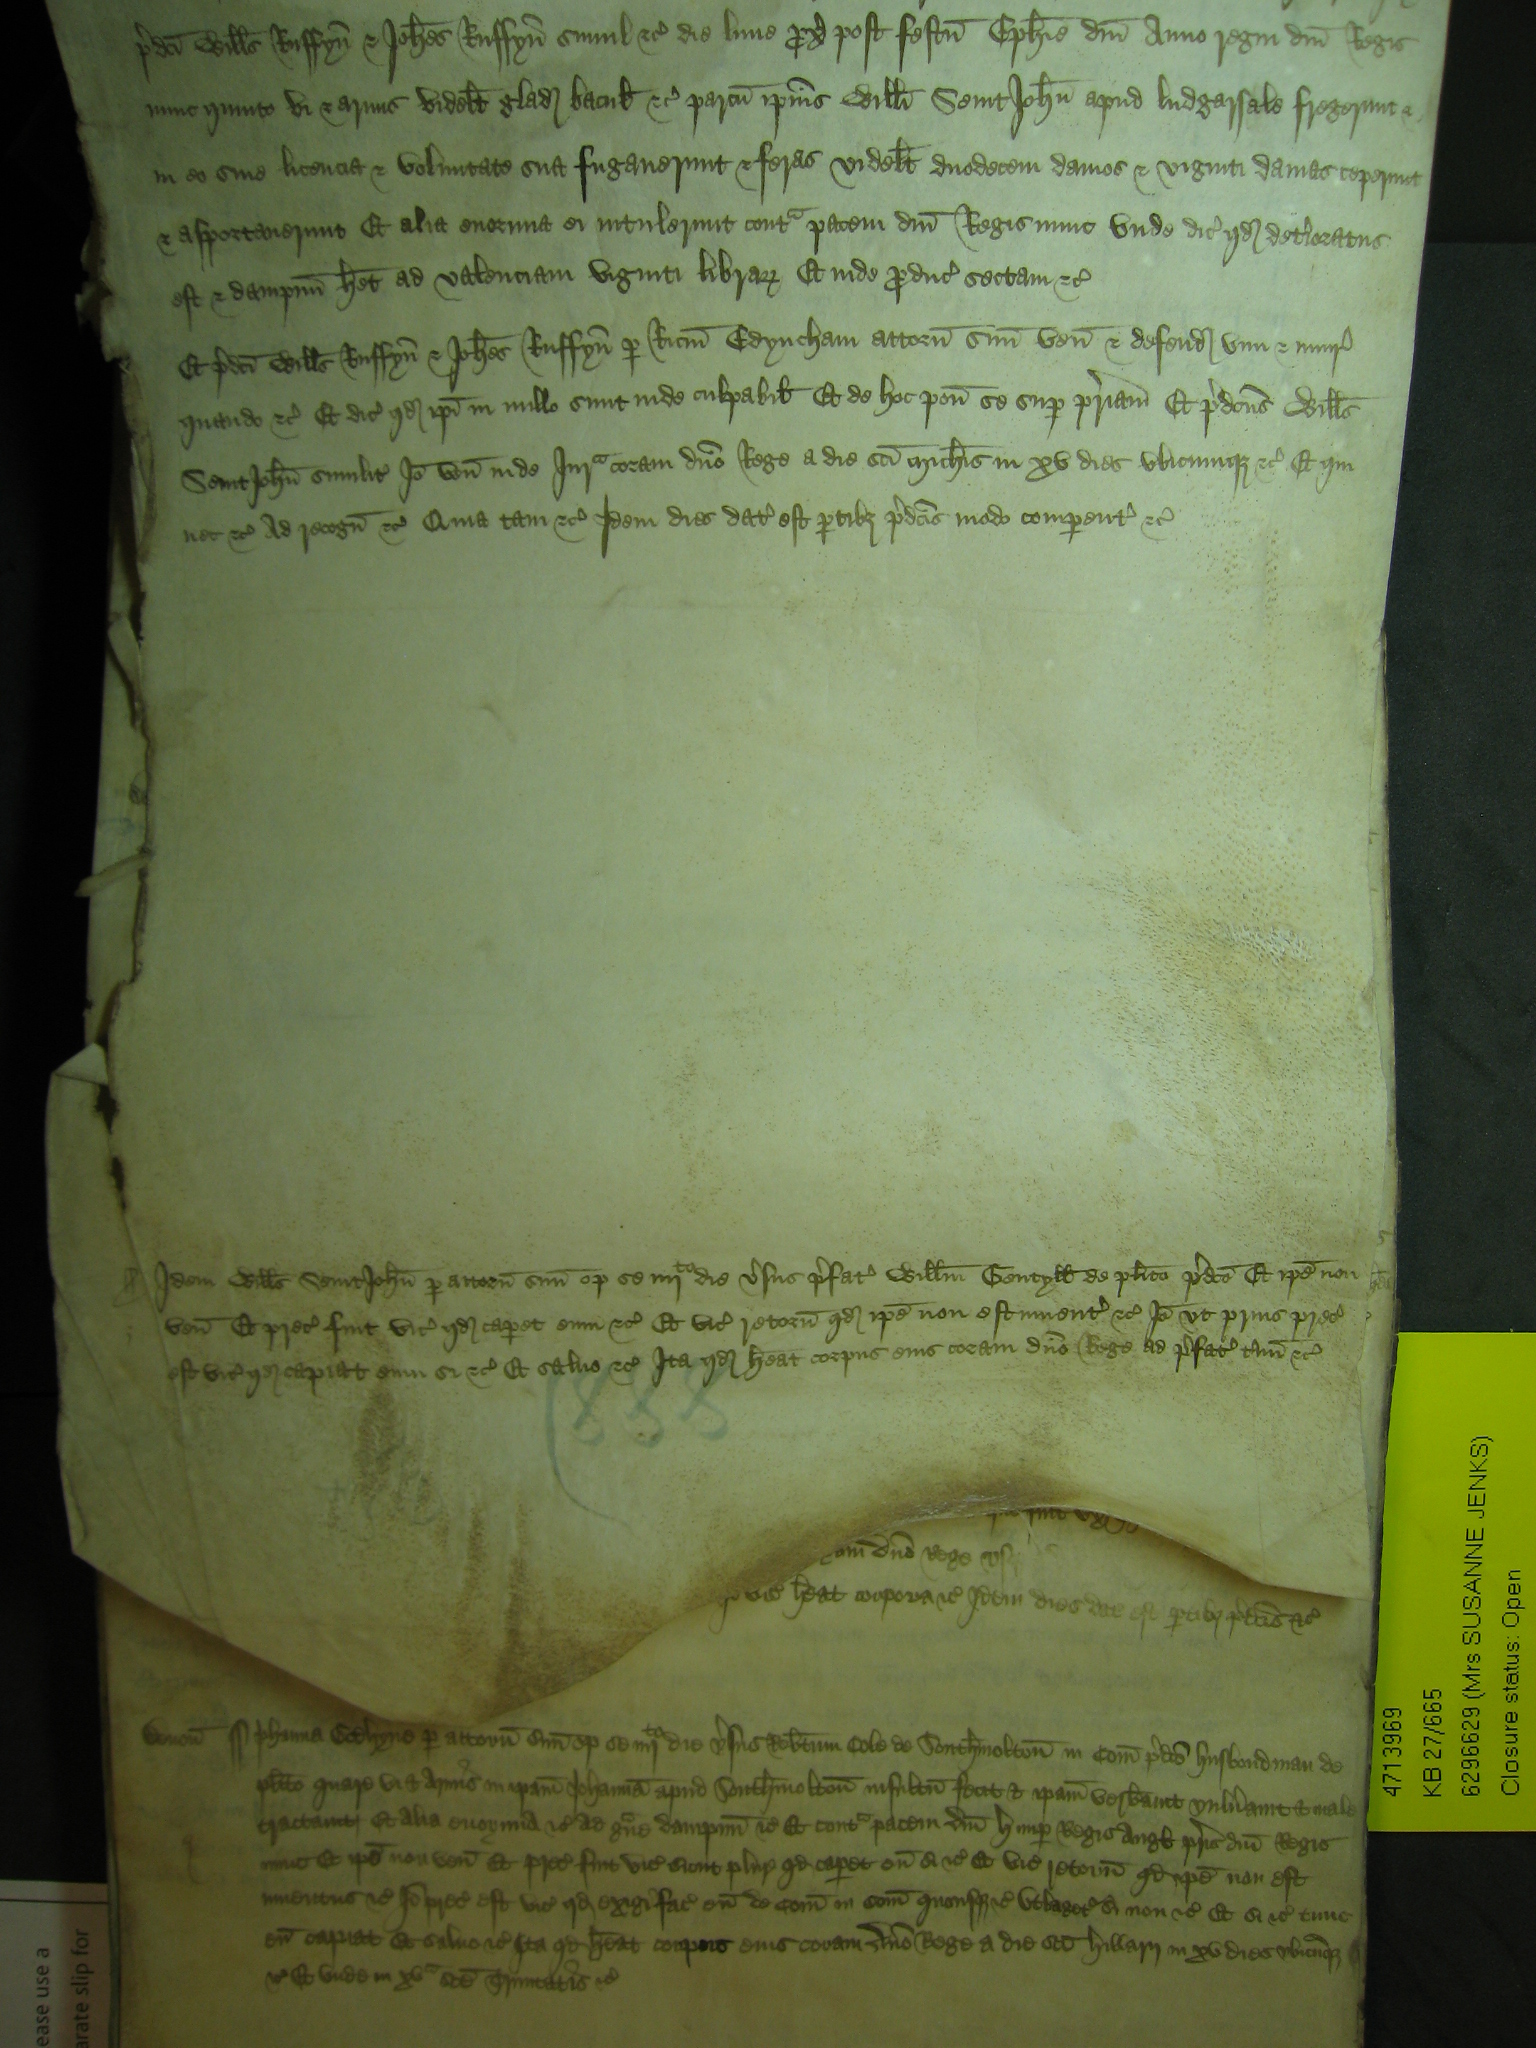 p̄dc̄i Will̄s Ruffyn̄ & Joh̄es Ruffyn̄ simul &c̄ die lune p̄x post festū Eph̄ie dn̄i Anno regni dn̄i Regis
nunc quinto vi & armis videlt̄ glad̄ bacul̄ &c̄ parcū ip̄ius Will̄i SeintJoh̄n apud ludgarsale fregerunt &
in eo sine licencia & voluntate sua fugauerunt & feras videlt̄ duodecem damos & viginti damas ceperunt
& asportauerunt Et alia enormia ei intulerunt contᵃ pacem dn̄i Regis nunc vnde dic̄ qd̄ det̄ioratus
est & dampnū h̄et ad valenciam viginti librarꝝ Et inde p̄duc̄ sectam &c̄
Et p̄dc̄i Will̄s Ruffyn̄ & Joh̄es Ruffyn̄ ꝑ Ric̄m Edyncham attorn̄ suū ven̄ & defend̄ vim & iniur̄
quando &c̄ Et dic̄ qd̄ ip̄i in nullo sunt inde culpabil̄ Et de hoc pon̄ se suꝑ p̄riam Et p̄dc̄us Will̄s
SeintJoh̄n similit̄ Iō ven̄ inde Jurᵃ coram dn̄o Rege a die sc̄i Mich̄is in xv dies vbicumqꝫ &c̄ Et qui
nec &c̄ Ad recogn̄ &c̄ Quia tam &c̄ Idem dies dat̄ est ꝑtibꝫ p̄dc̄is modo comperent̄ &c̄
Idem Will̄s SeintJoh̄n ꝑ attorn̄ suū op̄ se iiijᵗᵒ die v̄sus p̄fat̄ Will̄m Gentyll̄ de pl̄ito p̄dc̄o Et ip̄e non
ven̄ Et prec̄ fuit vic̄ qd̄ caperet eum &c̄ Et vic̄ retorn̄ qd̄ ip̄e non est inuent̄ &c̄ Iō vt prius prec̄
est vic̄ qd̄ capiat eum si &c̄ Et saluo &c̄ Ita qd̄ h̄eat corpus eius coram dn̄o Rege ad p̄fat̄ t̄mū &c̄
888
coram dn̄o Rege
vic̄ h̄eat corpora &c̄ Idem dies dat̄ est ꝑtibꝫ p̄dc̄is &c̄
Deuon̄ Joh̄anna ꝑ attorn̄ suū op̄ se iiijᵗᵒ die v̄sus Rob̄tum Cole de Southmolton̄ in Com̄ p̄dc̄o husbondman de
pl̄ito quare vi & Armis in ip̄am Johannā apud Southmolton̄ insultū fecit & ip̄am verb̄auit vuln̄auit & male
tractauit Et Alia enormia &c̄ Ad g̊ue dampnū &c̄ Et contᵃ pacem dn̄i H nuꝑ Regis Angl̄ pr̄is dn̄i Regis
nunc Et ip̄e non ven̄ Et prec̄ fuit vic̄ sicut plur̄ qd̄ caperet eū si &c̄ Et vic̄ retorn̄ qd̄ ip̄e non est
inuentus &c̄ Iō prec̄ est vic̄ qd̄ exigi fac̄ eū de Com̄ in Com̄ quousqꝫ &c̄ vtlaget̄ si non &c̄ Et si &c̄ tunc
eū capiat Et saluo &c̄ Ita qd̄ h̄eat corpus eius coram dn̄o Rege a die sc̄i Hillarij in xv dies vbicūqꝫ
&c̄ Et vnde in xvᵃ sc̄e Trinitatis &c̄
4713969
KB 27/665
6296629 (Mrs SUSANNE JENKS)
Closure status: Open
ease use a
arate slip for